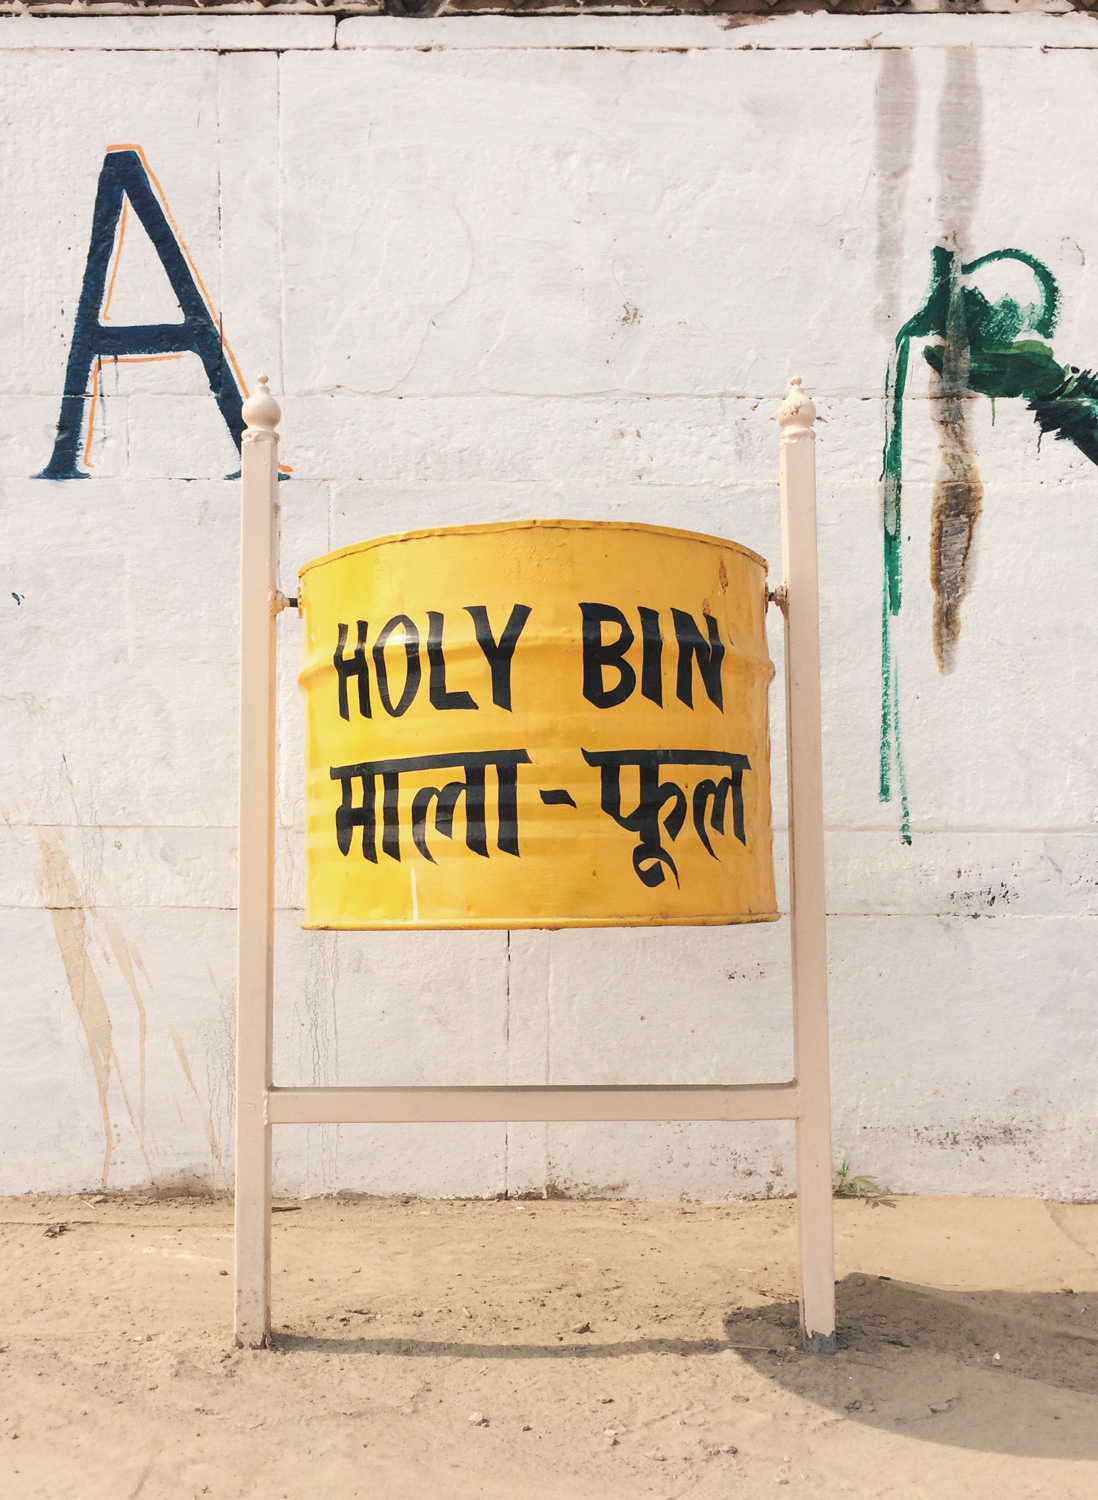 A R
HOLY BIN
माला-फूल